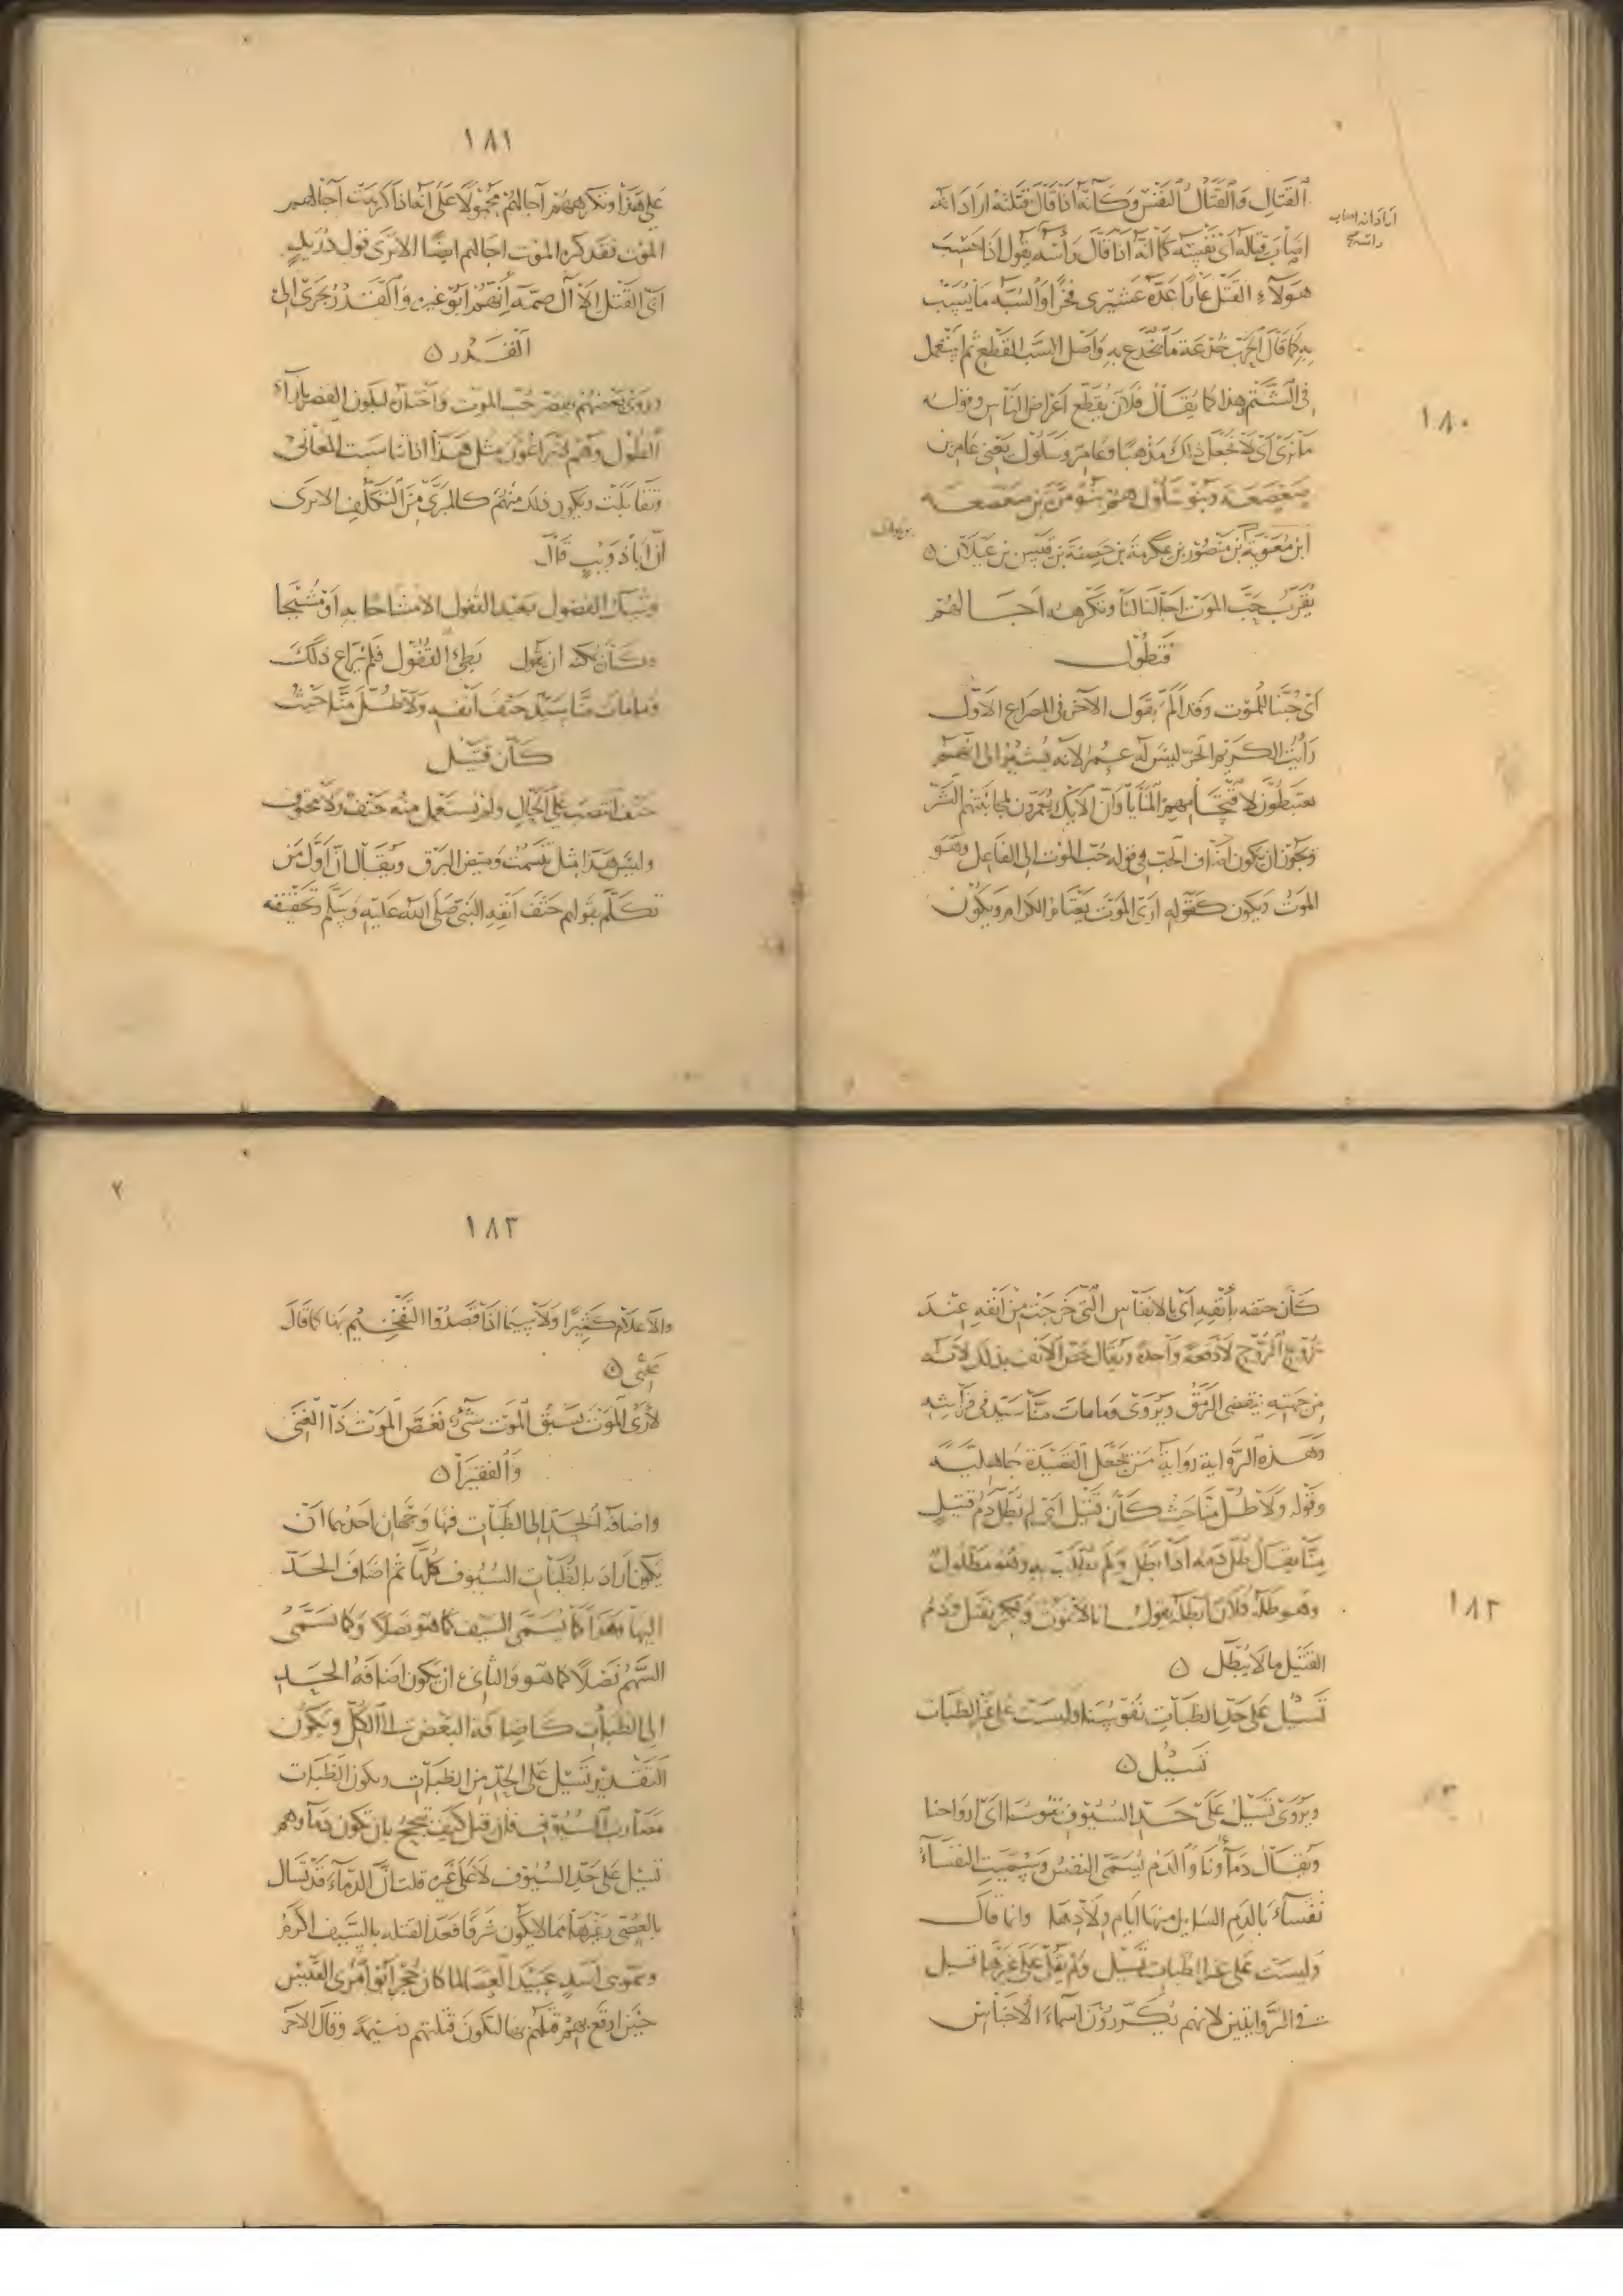 ١٨٠
القتال والقتال النفس وكأنه اذا قال قتلته اراد انه
اصاب قتاله اى نفسه كما انه اذا قال رأسه يقول اذا حسب
اراد انه اصاب راسه صح
هؤلاء القتل عارا عده عشيرتى فخرا والسبه ما يسب
به كما قال الحرب خدعة ما يخدع به واصل السب القطع ثم استعمل
فى الشتم وهذا كما يقال فلان يقطع اعراض الناس وقوله
ما نرى اى لا نجعل ذلك مذهبا وعامر وسلول يعنى عامر بن
صعصعة وبنو سلول هم بنو مرة بن صعصعة
ابن معوية بن منصور بن عكرمة بن خصفة بن قيس بن عيلان ن
يقرب حب الموت اجالنا لنا وتكرهه اجالهم
فتطول
اى حبنا للموت وقد الم بقول الآخر فى المصراع الاول
رأيت الكريم الحر ليس له عمر لانه يشير الى انهم
يعتبطون لاقتحامهم المنايا وان الاولئك يعمرون لمجانبتهم الشر
ويجوز ان يكون اضاف الحب فى قوله حب الموت الى الفاعل وهو
الموت ويكون كقوله ارى الموت يعتام الكرام ويكون
١٨١
على هذا وتكرههم آجالهم محمولا على انها اذا كرهت آجالهم
الموت فقد كره الموت اجالهم ايضا الا ترى قول دريد
ابى القتل الا آل صمة انهم ابوا غيره والقدر يجرى الى
القدر ن
وروى بعضهم يقصر حب الموت واختاره ليكون القصر بازاء
الطول وهم لا يراعون مثل هذا اذا تناسبت المعانى
وتقابلت ويكون ذلك منهم كالمبرئ من التكلف الا ترى
ان ابا ذويب قال
وشيك الفصول بعيد القفول الا مشاحا به او مشيحا
وكان يمكنه ان يقول بطئ القفول فلم يراع ذلك
وما مات منا سيد حتف انفه ولا طل منا حيث
كان قتيل
حتف انتصب على الحال ولم يستعمل منه حتف ولا محتوف
وليس هذا مثل تبسمت وميض البرق ويقال ان اول من
تكلم بقولهم حتف انفه النبى صلى الله عليه وسلم وتحقيقه
١٨٢
كان حتفه بأنفه اى بالانفاس التى خرجت من انفه عند
نزوع الروح لا دفعة واحدة ويقال خص الانف بذلك لانه
من جهته ينقضى الرمق ويروى وما مات منا سيد فى فراشه
وهذه الرواية رواية من يجعل القصيدة جاهلية
وقوله ولا طل منا حيث كان قتيل اى لم يطل دم قتيل
منا يقال طل دمه اذا بطل ولم يطلب به وهو مطلول
وهو طله فلان ابطله يقول انا لا نموت ولكن نقتل ودم
القتيل منا لا يطل ن
تسيل على حد الظبات نفوسنا وليست على غير الظبات
تسيل ن
ويروى تسيل على حد السيوف نفوسنا اى ارواحنا
ويقال دماونا والدم يسمى النفس وسميت النفساء
نفساء بالدم السايل منها ايام ولادها وانما قال
وليست على غير الظبات تسيل ولم يقل على غيرها قيل
فى الروايتين لانهم يكررون اسماء الاجناس
١٨٣
والاعلام كثيرا ولا سيما اذا قصدوا التفخيم بها كما قال
عدى ن
لا ارى الموت يسبق الموت شئ نغص الموت ذا الغنى
والفقيرا ن
واضافة الحد الى الظبات فيها وجهان احدهما ان
يكون اراد بالظبات السيوف كلها ثم اضاف الحد
اليها وهذا كما يسمى السيف كما هو نصلا وكما يسمى
السهم نصلا كما هو والثانى ان يكون اضافة الحد
الى الظبات كاضافة البعض الى الكل ويكون
التقدير تسيل على الحد من الظبات ويكون الظبات
مضارب السيوف فان قيل كيف تبجح بان تكون دماوهم
تسيل على حد السيوف لا على غيره قلت ان الدماء قد تسال
بالعصى وغيرها مما لا يكون شرفا فعد القتله بالسيف اكرم
وسموى اسد عبيد العصا لما كان حجر ابو امرئ القيس
حين اوقع بهم قتلهم بها لتكون قتلتهم دميمة وقال الآخر